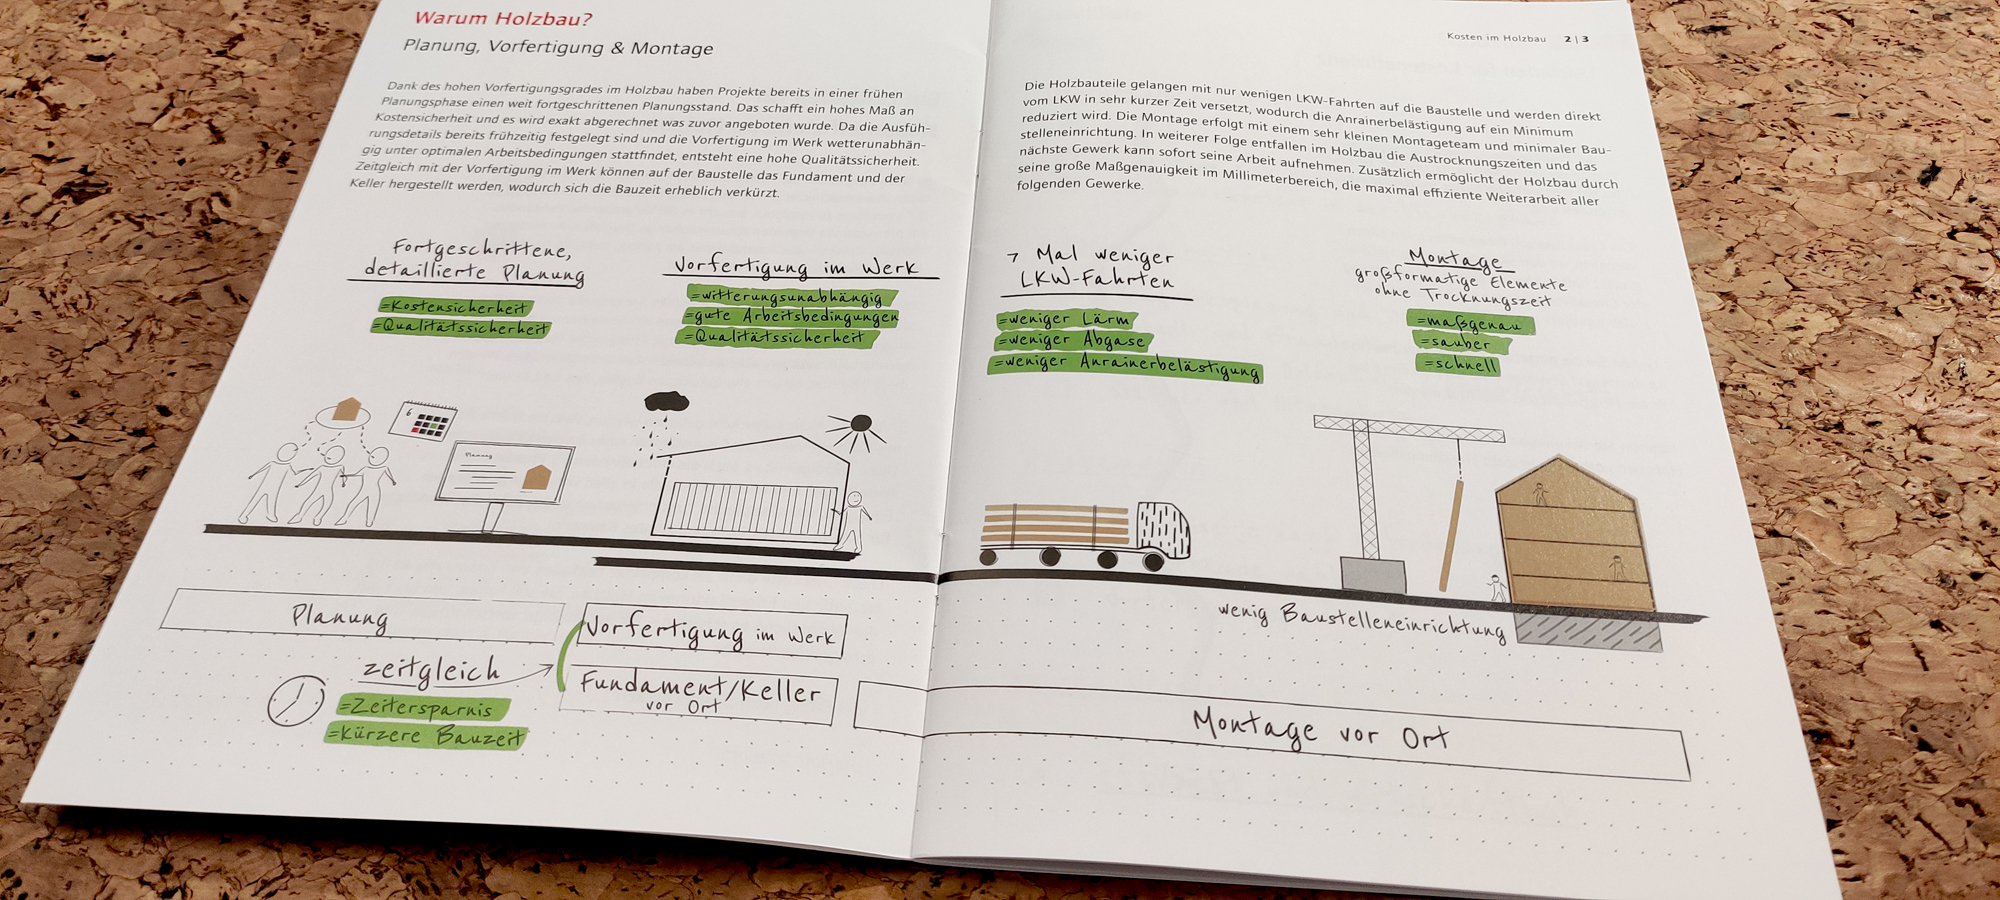 Warum Holzbau?
Planung, Vorfertigung & Montage
Dank des hohen Vorfertigungsgrades im Holzbau haben Projekte bereits in einer frühen
Planungsphase einen weit fortgeschrittenen Planungsstand. Das schafft ein hohes Maß an
Kostensicherheit und es wird exakt abgerechnet was zuvor angeboten wurde. Da die Ausfüh-
rungsdetails bereits frühzeitig festgelegt sind und die Vorfertigung im Werk wetterunabhän-
gig unter optimalen Arbeitsbedingungen stattfindet, entsteht eine hohe Qualitätssicherheit.
Zeitgleich mit der Vorfertigung im Werk können auf der Baustelle das Fundament und der
Keller hergestellt werden, wodurch sich die Bauzeit erheblich verkürzt.
Fortgeschrittene,
detaillierte Planung
=Kostensicherheit
=Qualitätssicherheit
Vorfertigung im Werk
=witterungsunabhängig
=gute Arbeitsbedingungen
=Qualitätssicherheit
6
Planung
Planung
Vorfertigung im Werk
zeitgleich
Fundament/Keller
vor Ort
=Zeitersparnis
=kürzere Bauzeit
Kosten im Holzbau 2|3
Die Holzbauteile gelangen mit nur wenigen LKW-Fahrten auf die Baustelle und werden direkt
vom LKW in sehr kurzer Zeit versetzt, wodurch die Anrainerbelästigung auf ein Minimum
reduziert wird. Die Montage erfolgt mit einem sehr kleinen Montageteam und minimaler Bau-
stelleneinrichtung. In weiterer Folge entfallen im Holzbau die Austrocknungszeiten und das
nächste Gewerk kann sofort seine Arbeit aufnehmen. Zusätzlich ermöglicht der Holzbau durch
seine große Maßgenauigkeit im Millimeterbereich, die maximal effiziente Weiterarbeit aller
folgenden Gewerke.
7 Mal weniger
LKW-Fahrten
=weniger Lärm
=weniger Abgase
=weniger Anrainerbelästigung
Montage
großformatige Elemente
ohne Trocknungszeit
=maßgenau
=sauber
=schnell
wenig Baustelleneinrichtung
Montage vor Ort